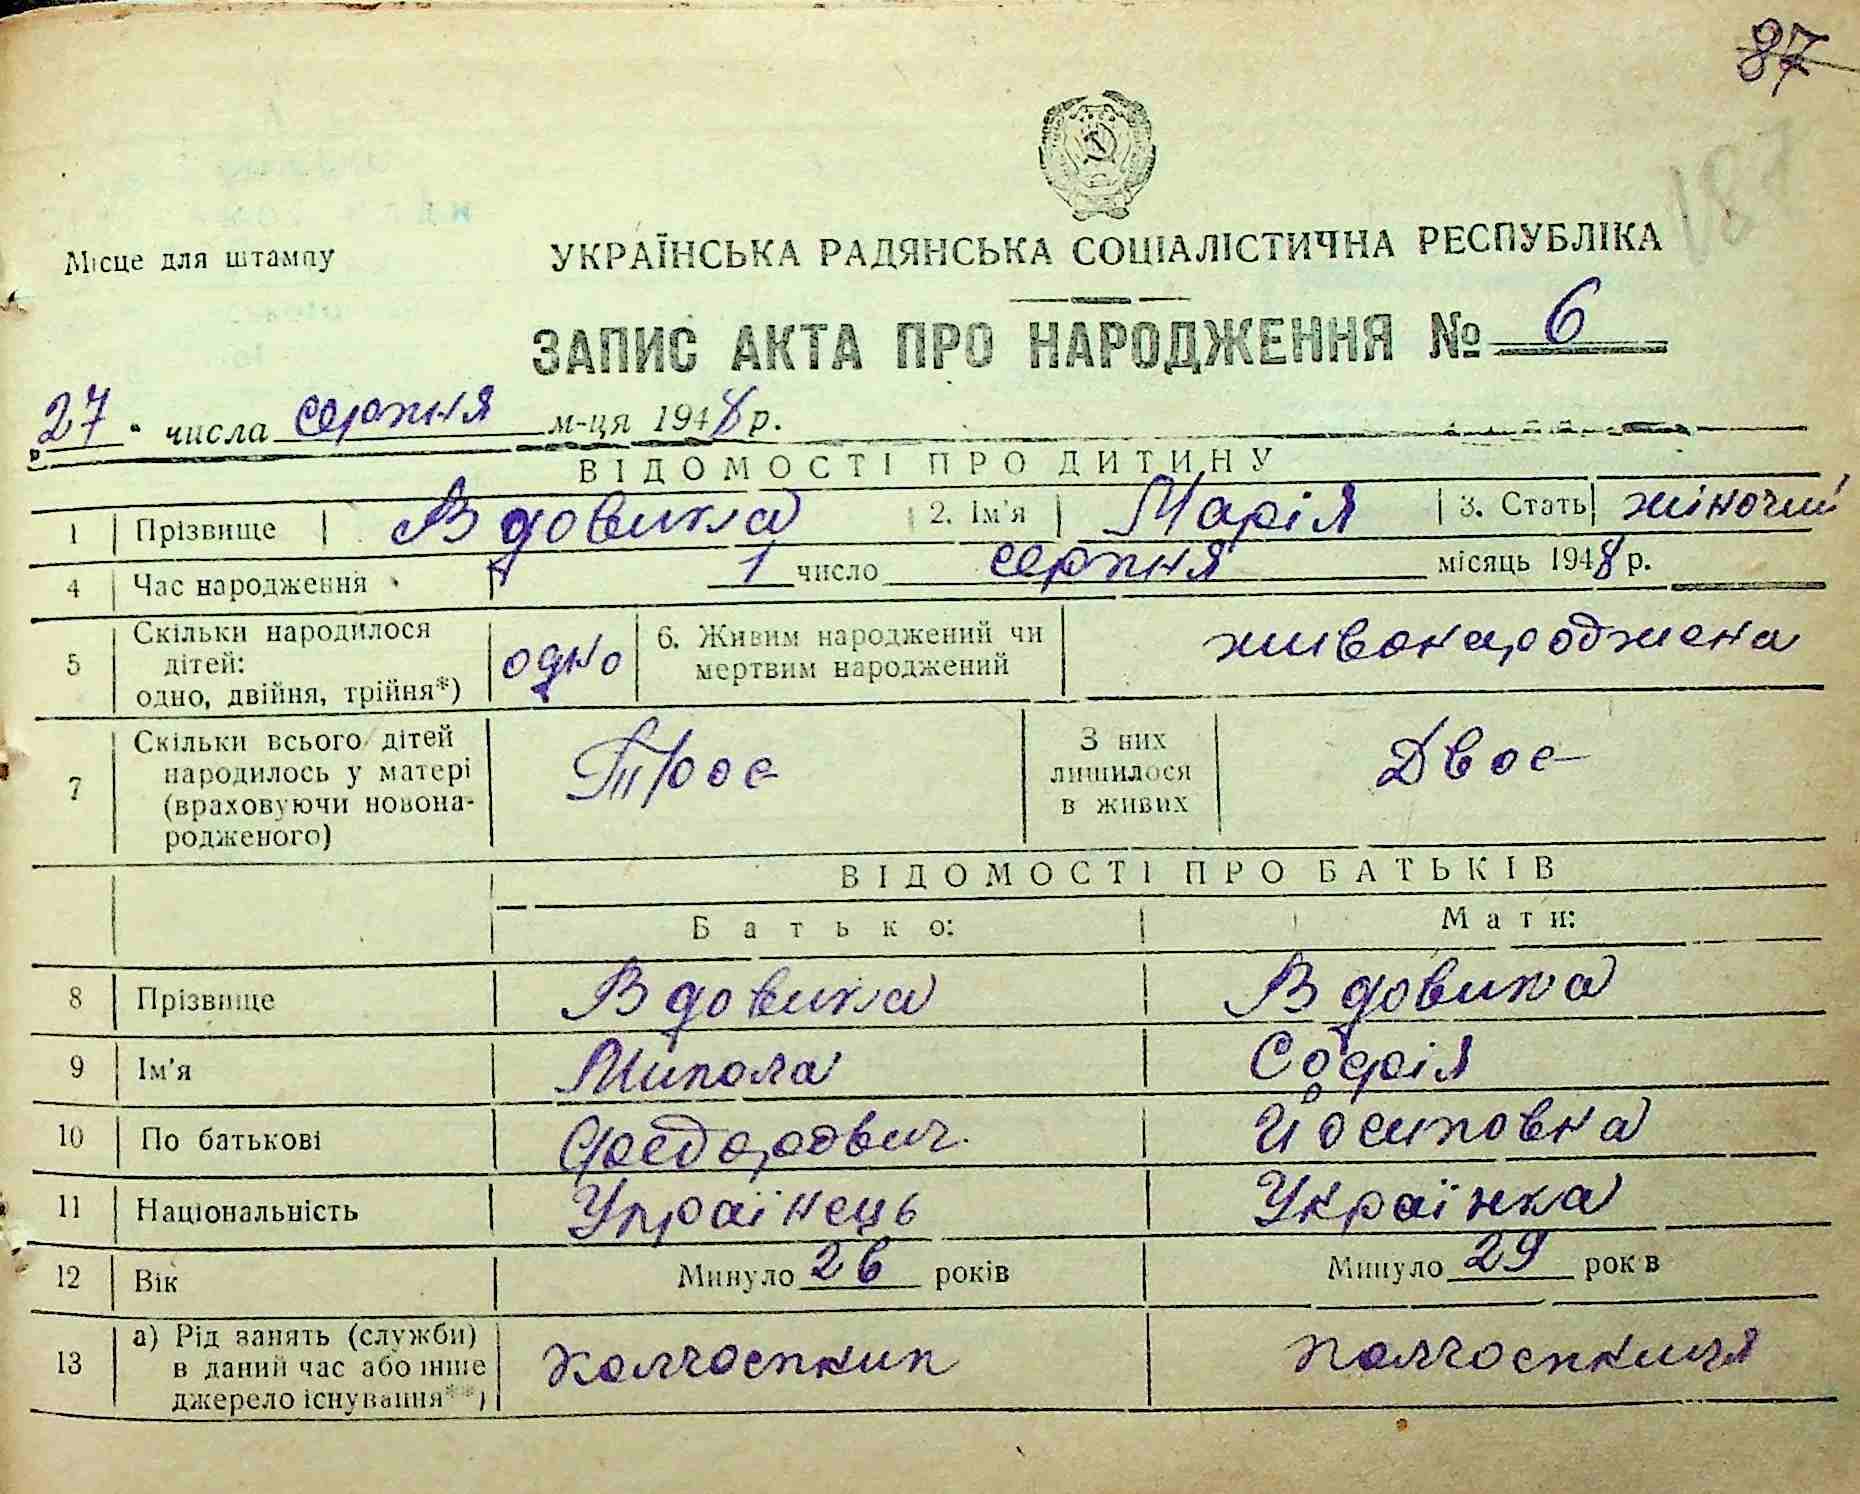 87
187
Місце для штампу
УКРАЇНСЬКА РАДЯНСЬКА СОЦІАЛІСТИЧНА РЕСПУБЛІКА
ЗАПИС АКТА ПРО НАРОДЖЕННЯ № 6
27 числа серпня м-ця 1948 р.
ВІДОМОСТІ ПРО ДИТИНУ
1 Прізвище Вдовика 2. Ім'я Марія 3. Стать жіночий
4 Час народження 1 число серпня місяць 1948 р.
5 Скільки народилося дітей: одно, двійня, трійня*) одно 6. Живим народжений чи мертвим народжений живонароджена
7 Скільки всього дітей народилось у матері (враховуючи новонародженого) Троє З них лишилося в живих Двоє
ВІДОМОСТІ ПРО БАТЬКІВ
Батько: Мати:
8 Прізвище Вдовика Вдовика
9 Ім'я Микола Софія
10 По батькові Федорович Йосиповна
11 Національність Українець Українка
12 Вік Минуло 26 років Минуло 29 років
13 а) Рід занять (служби) в даний час або інше джерело існування**) колгоспник колгоспниця